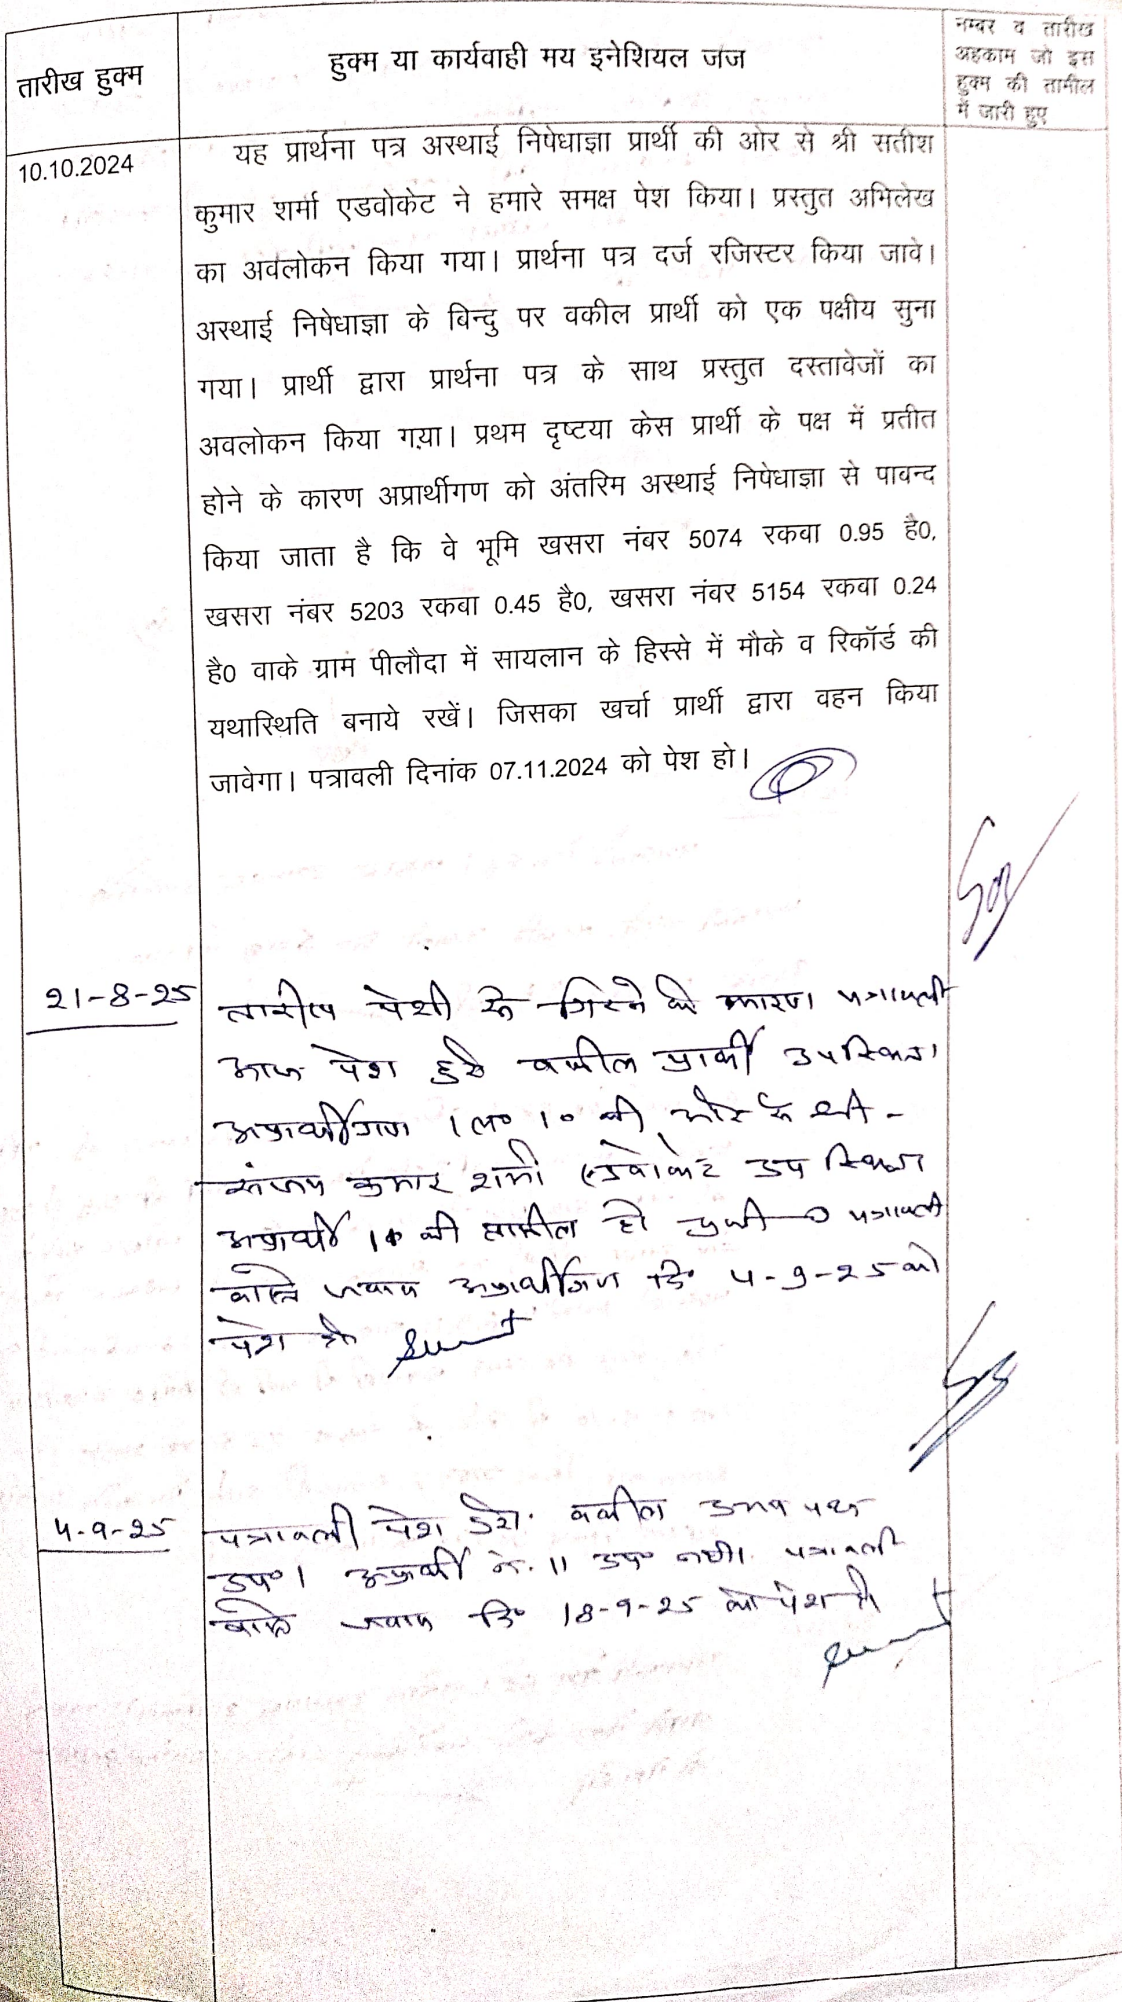 तारीख हुक्म
हुक्म या कार्यवाही मय इनेशियल जज
नम्बर व तारीख
अहकाम जो इस
हुक्म की तामील
में जारी हुए
10.10.2024
यह प्रार्थना पत्र अस्थाई निषेधाज्ञा प्रार्थी की ओर से श्री सतीश
कुमार शर्मा एडवोकेट ने हमारे समक्ष पेश किया। प्रस्तुत अभिलेख
का अवलोकन किया गया। प्रार्थना पत्र दर्ज रजिस्टर किया जावे।
अस्थाई निषेधाज्ञा के विन्दु पर वकील प्रार्थी को एक पक्षीय सुना
गया। प्रार्थी द्वारा प्रार्थना पत्र के साथ प्रस्तुत दस्तावेजों का
अवलोकन किया गया। प्रथम दृष्टया केस प्रार्थी के पक्ष में प्रतीत
होने के कारण अप्रार्थीगण को अंतरिम अस्थाई निषेधाज्ञा से पाबन्द
किया जाता है कि वे भूमि खसरा नंबर 5074 रकवा 0.95 है0,
खसरा नंबर 5203 रकवा 0.45 है0, खसरा नंवर 5154 रकवा 0.24
है0 वाके ग्राम पीलौदा में सायलान के हिस्से में मौके व रिकॉर्ड की
यथास्थिति बनाये रखें। जिसका खर्चा प्रार्थी द्वारा वहन किया
जावेगा। पत्रावली दिनांक 07.11.2024 को पेश हो।
21-8-25
तारीख पेशी के गिरने के कारण पत्रावली
आज पेश हुई वकील प्रार्थी उपस्थित।
अप्रार्थीगण 1 ल० 10 की ओर से श्री -
संजय कुमार शर्मा एडवोकेट उपस्थित
अप्रार्थी की तामील हो चुकी पत्रावली
वास्ते जवाब अप्रार्थीगण दि० 4-9-25 को
पेश हो
4-9-25
पत्रावली पेश हुई. वकील उभय पक्ष
उप०। अप्रार्थी नं. 11 उप० नही। पत्रावली
वास्ते जवाब दि० 18-9-25 को पेश हो